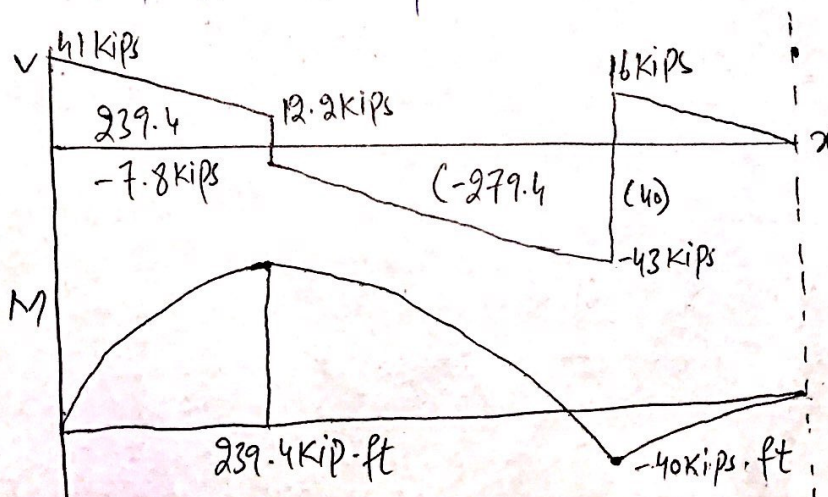 V 41 Kips
16 Kips
12.2 Kips
239.4
x
-7.8 Kips
(-279.4
(40)
-43 Kips
M
239.4 Kip-ft
-40 Kips. ft